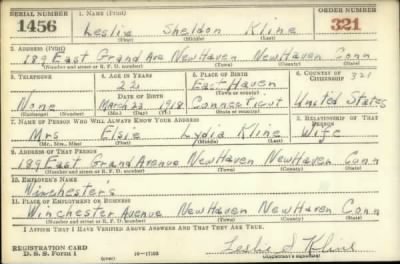 SERIAL NUMBER 1. NAME (Print) ORDER NUMBER
1456 Leslie Sheldon Kline 321
(First) (Middle) (Last)
2. ADDRESS (Print)
189 East Grand Ave New Haven New Haven Conn
(Number and street or R. F. D. number) (Town) (County) (State)
3. TELEPHONE 4. AGE IN YEARS 5. PLACE OF BIRTH 6. COUNTRY OF CITIZENSHIP
22 East Haven 321
DATE OF BIRTH (Town or county)
None March 23 1918 Connecticut United States
(Exchange) (Number) (Mo.) (Day) (Yr.) (State or country)
7. NAME OF PERSON WHO WILL ALWAYS KNOW YOUR ADDRESS 8. RELATIONSHIP OF THAT PERSON
Mrs Elsie Lydia Kline Wife
(Mr., Mrs., Miss) (First) (Middle) (Last)
9. ADDRESS OF THAT PERSON
189 East Grand Avenue New Haven New Haven Conn
(Number and street or R. F. D. number) (Town) (County) (State)
10. EMPLOYER'S NAME
Winchester's
11. PLACE OF EMPLOYMENT OR BUSINESS
Winchester Avenue New Haven New Haven Conn
(Number and street or R. F. D. number) (Town) (County) (State)
I AFFIRM THAT I HAVE VERIFIED ABOVE ANSWERS AND THAT THEY ARE TRUE.
REGISTRATION CARD Leslie S. Kline
D. S. S. Form 1 (over) 16—17105 (Registrant's signature)